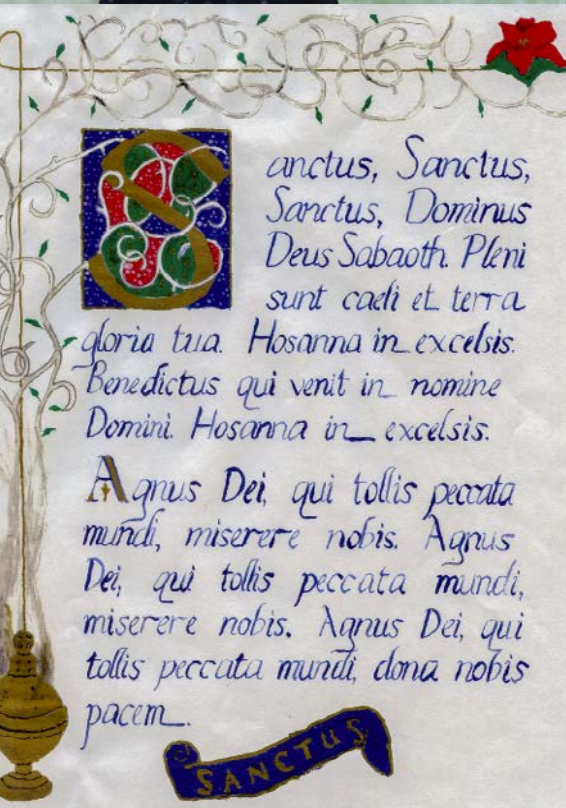 Sanctus, Sanctus,
Sanctus, Dominus
Deus Sabaoth. Pleni
sunt caeli et terra
gloria tua. Hosanna in excelsis.
Benedictus qui venit in nomine
Domini. Hosanna in excelsis.
Agnus Dei, qui tollis peccata
mundi, miserere nobis. Agnus
Dei, qui tollis peccata mundi,
miserere nobis. Agnus Dei, qui
tollis peccata mundi, dona nobis
pacem.
SANCTUS